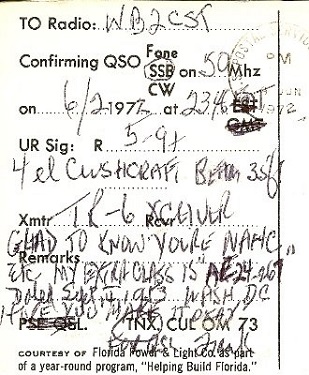 TO Radio: WB2CST
Fone
Confirming QSO SSB on 50 Mhz
CW
on 6/2 1972 at 2346 EST
GMT
UR Sig: R 5-9+
4 el CUSHCRAFT BEAM 35ft
Xmtr TR-6 Rcvr XCEIVER
GLAD TO KNOW YOU'RE NAME,
Remarks
ETC MY EXTRA CLASS IS
DATED SEPT 1963 WASH, DC
HAVE YOU MAKE IT OKAY
PSE QSL. (TNX) CUL OM 73
COURTESY OF Florida Power & Light Co. as part
of a year-round program, "Helping Build Florida."